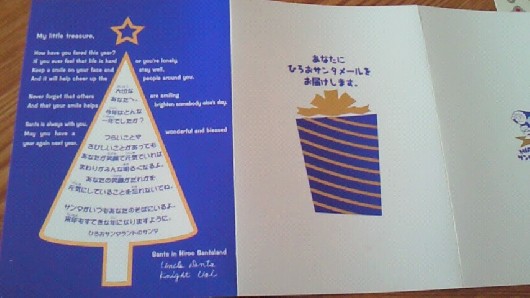 My little treasure,
How have you fared this year?
If you ever feel that life is hard or you're lonely,
Keep a smile on your face and stay well,
And it will help cheer up the people around you.
Never forget that others are smiling
And that your smile helps brighten somebody else's day.
Santa is always with you.
May you have a wonderful and blessed
year again next year.
大切な
あなたへ。
今年はどんな
一年でしたか?
つらいことや
さびしいことがあっても
あなたが笑顔で元気でいれば
まわりがみんな明るくなるよ。
あなたの笑顔がだれかを
元気にしていることを忘れないでね。
サンタがいつもあなたのそばにいるよ。
来年もすてきな年になりますように。
ひろおサンタランドのサンタ
Santa in Hiroo Santaland
Uncle Santa
あなたに
ひろおサンタメールを
お届けします。